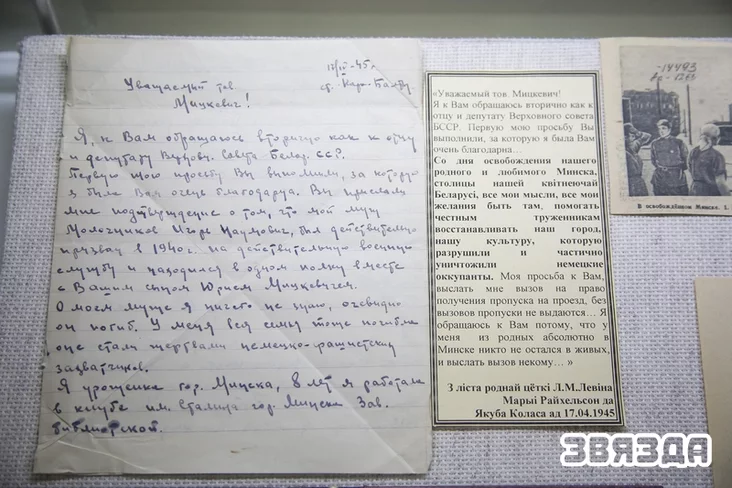 17/IV-45г.
Уважаемый тов.
Мицкевич!
Я, к Вам обращаюсь вторично как к отцу
и депутату Верховн. Совета Белор. ССР.
Первую мою просьбу Вы выполнили, за которую
я была Вам очень благодарна. Вы прислали
мне подтверждение о том, что мой муж
Молочников Игорь Наумович, был действительно
призван в 1940г. на действительную военную
службу и находился в одном полку вместе
с Вашим сыном Юрием Мицкевичем.
О моем муже я ничего не знаю, очевидно
он погиб. У меня вся семья тоже погибла
они стали жертвами немецко-фашистских
захватчиков.
Я уроженка гор. Минска, 8 лет я работала
в клубе им. Сталина гор. Минска Зав.
библиотекой.
«Уважаемый тов. Мицкевич!
Я к Вам обращаюсь вторично как к
отцу и депутату Верховного совета
БССР. Первую мою просьбу Вы
выполнили, за которую я была Вам
очень благодарна…
Со дня освобождения нашего
родного и любимого Минска,
столицы нашей квітнеючай
Беларусі, все мои мысли, все мои
желания быть там, помогать
честным труженникам
восстанавливать наш город,
нашу культуру, которую
разрушили и частично
уничтожили немецкие
оккупанты. Моя просьба к Вам,
выслать мне вызов на право
получения пропуска на проезд, без
вызовов пропуски не выдаются… Я
обращаюсь к Вам потому, что у
меня из родных абсолютно в
Минске никто не остался в живых,
и выслать вызов некому… »
З ліста роднай цёткі Л.М.Левіна
Марыі Райхельсон да
Якуба Коласа ад 17.04.1945
-14493
В освобождённом Минске. 1.
ЗВЯЗДА